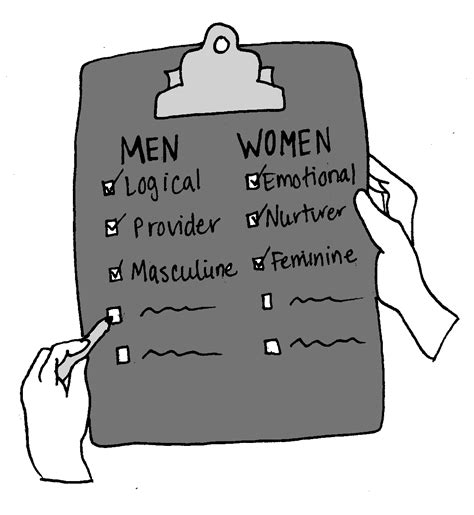 MEN
Logical
Provider
Masculine
WOMEN
Emotional
Nurturer
Feminine